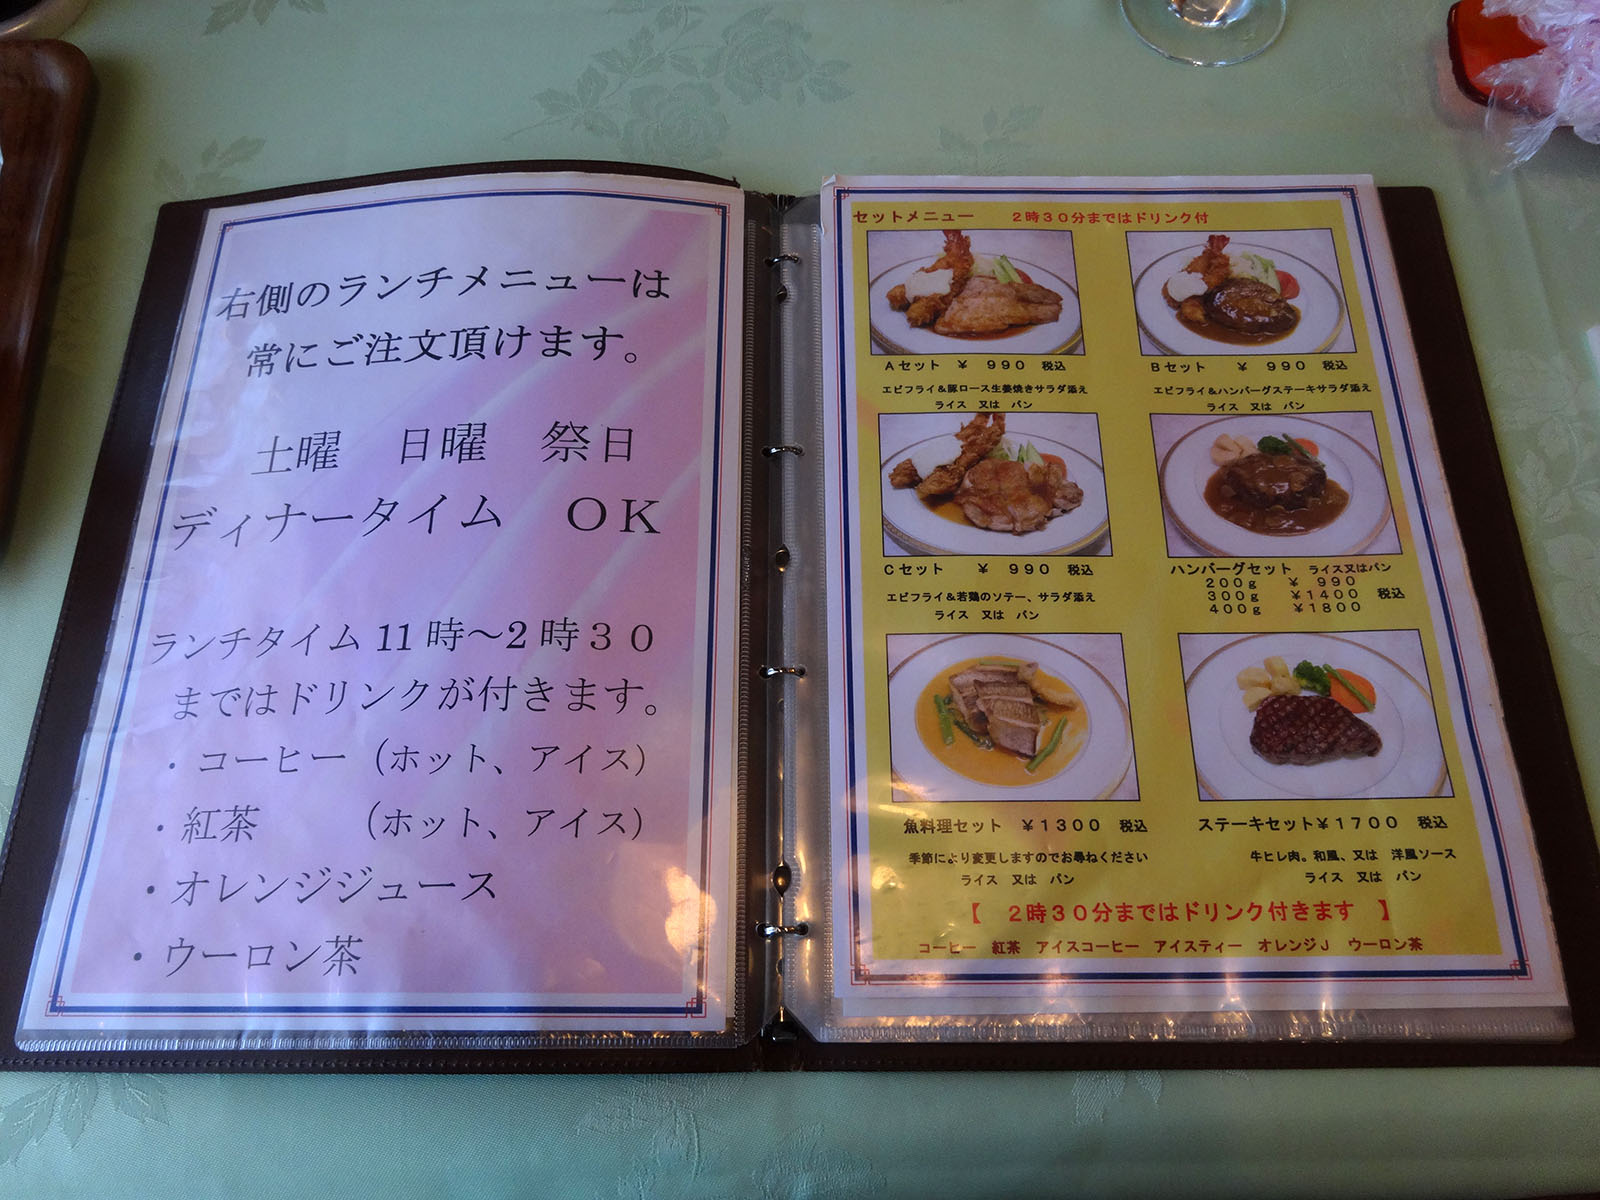 右側のランチメニューは
常にご注文頂けます。
土曜 日曜 祭日
ディナータイム OK
ランチタイム11時～2時30
まではドリンクが付きます。
・コーヒー（ホット、アイス）
・紅茶 （ホット、アイス）
・オレンジジュース
・ウーロン茶
セットメニュー 2時30分まではドリンク付
Aセット ￥990 税込
エビフライ&豚ロース生姜焼きサラダ添え
ライス 又は パン
Bセット ￥990 税込
エビフライ&ハンバーグステーキサラダ添え
ライス 又は パン
Cセット ￥990 税込
エビフライ&若鶏のソテー、サラダ添え
ライス 又は パン
ハンバーグセット ライス又はパン
200g ￥990
300g ￥1400 税込
400g ￥1800
魚料理セット ￥1300 税込
季節により変更しますのでお尋ねください
ライス 又は パン
ステーキセット￥1700 税込
牛ヒレ肉。和風、又は 洋風ソース
ライス 又は パン
【 2時30分まではドリンク付きます 】
コーヒー 紅茶 アイスコーヒー アイスティー オレンジJ ウーロン茶